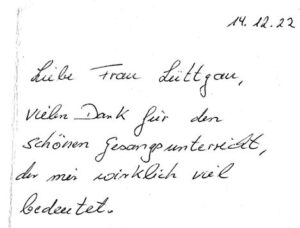 14.12.22
Liebe Frau Lüttgau,
vielen Dank für den
schönen Gesangsunterricht,
der mir wirklich viel
bedeutet.